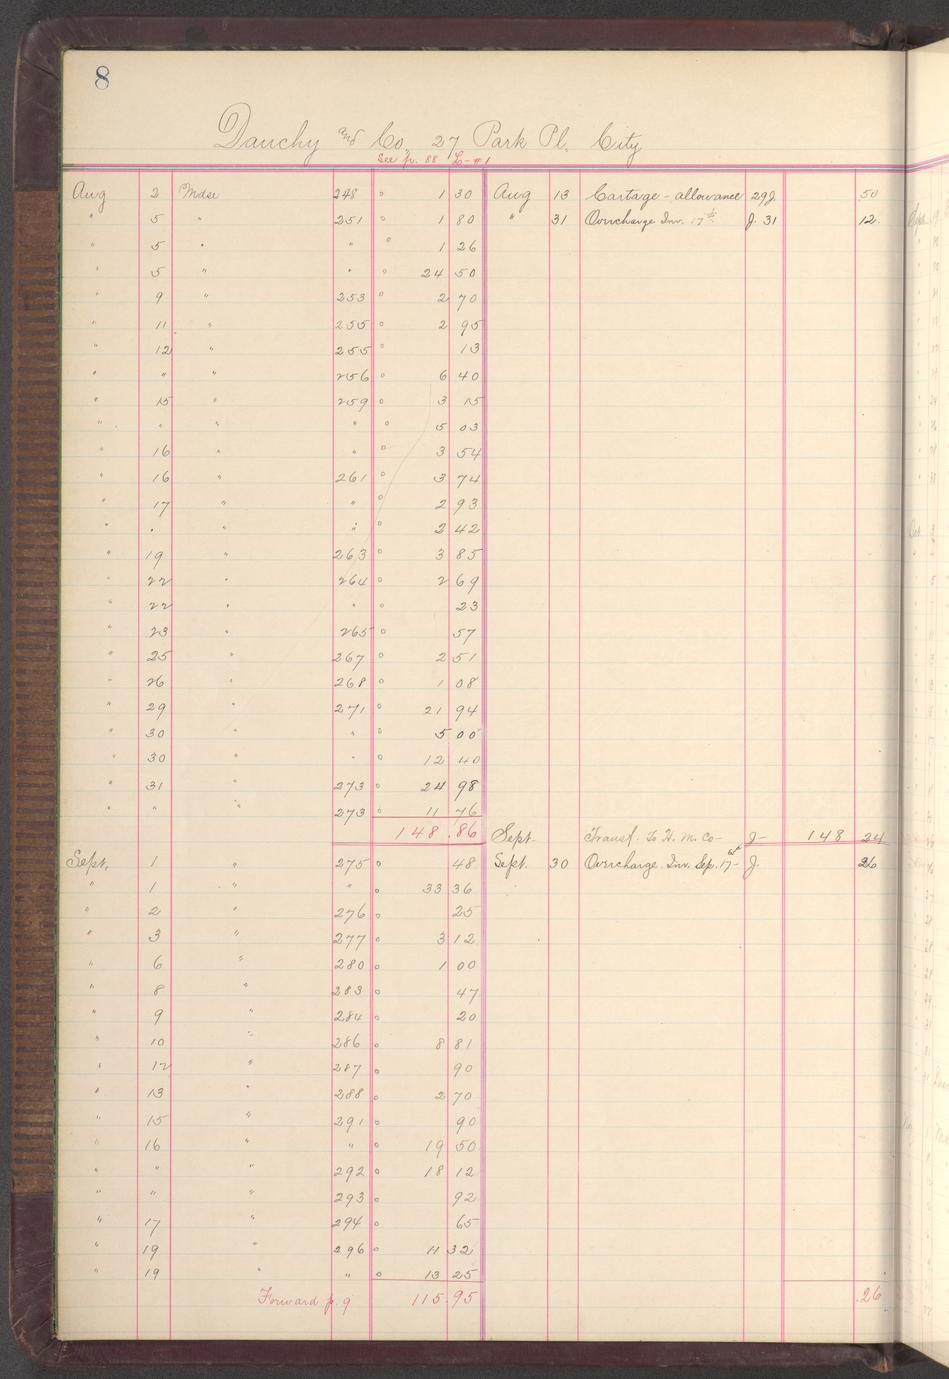 8
Dauchy and Co. 27 Park Pl. City
See p. 88 L-#1
Aug 2 Mdse 248 1 30 Aug 13 Cartage - allowance 29 J. 50
" 5 " 251 1 80 " 31 Overcharge Inv. 17th J. 31 12
" 5 " " 1 26
" 5 " " 24 50
" 9 " 253 2 70
" 11 " 255 2 95
" 12 " 255 13
" " " 256 6 40
" 15 " 259 3 15
" " " " 5 03
" 16 " " 3 54
" 16 " 261 3 74
" 17 " " 2 93
" " " " 2 42
" 19 " 263 3 85
" 22 " 264 2 69
" 22 " " 23
" 23 " 265 57
" 25 " 267 2 51
" 26 " 268 1 08
" 29 " 271 21 94
" 30 " " 5 00
" 30 " " 12 40
" 31 " 273 24 98
" " " 273 11 76
148.86 Sept. Transf. To H. M. Co- J- 148 24
Sept. 1 " 275 48 Sept. 30 Overcharge Inv. Sep. 17- J. 26
" 1 " " 33 36
" 2 " 276 25
" 3 " 277 3 12
" 6 " 280 1 00
" 8 " 283 47
" 9 " 284 20
" 10 " 286 8 81
" 12 " 287 90
" 13 " 288 2 70
" 15 " 291 90
" 16 " " 19 50
" " " 292 18 12
" " " 293 92
" 17 " 294 65
" 19 " 296 11 32
" 19 " " 13 25
Forward p. 9 115.95 .26